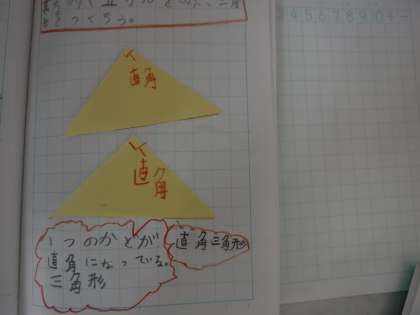 つくろう。
直角
直角
1つのかどが
直角になっている。
三角形
直角三角形
4567890+-